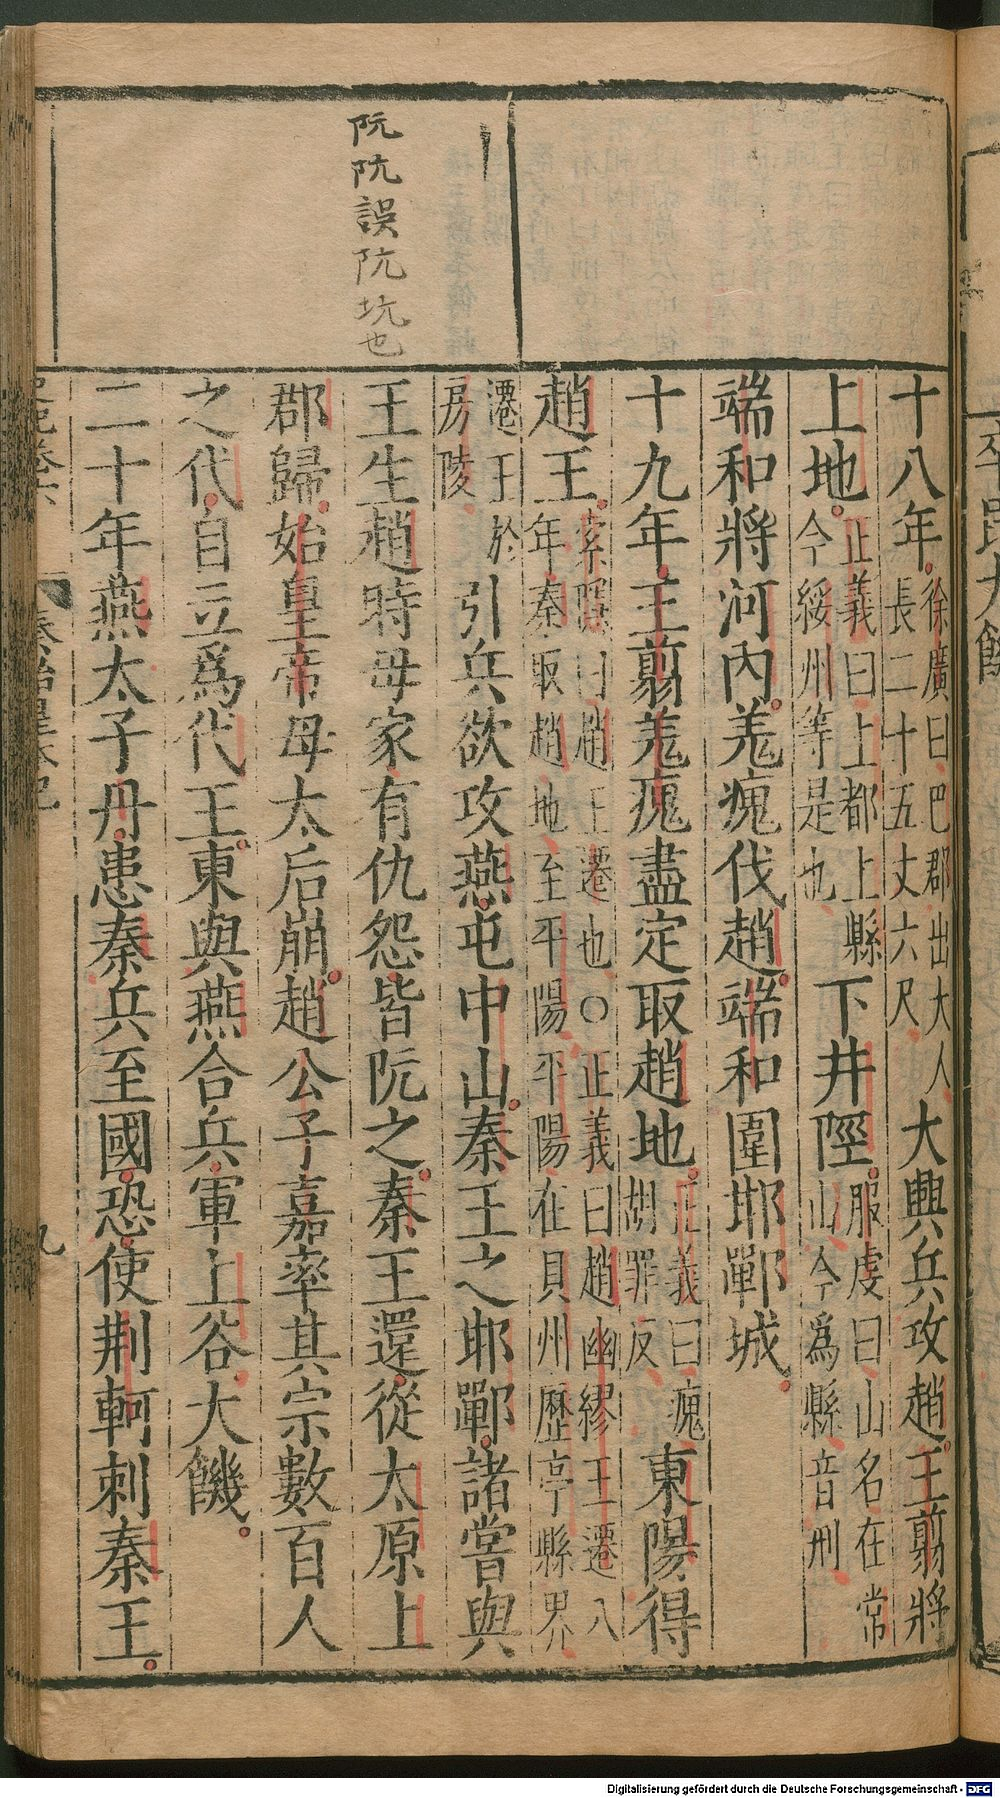 阮阬誤阬坑也
十八年徐廣曰巴郡出大人長二十五丈六尺大興兵攻趙王翦將
上地正義曰上郡上縣今綏州等是也下井陘服虔曰山名在常山今爲縣音刑
端和將河內羗瘣伐趙端和圍邯鄲城
十九年王翦羗瘣盡定取趙地正義曰瘣胡罪反東陽得
趙王索隱曰趙王遷也○正義曰趙幽繆王遷八年秦取趙地至平陽平陽在貝州歷亭縣界
遷王於房陵引兵欲攻燕屯中山秦王之邯鄲諸嘗與
王生趙時母家有仇怨皆阮之秦王還從太原上
郡歸始皇帝母太后崩趙公子嘉率其宗數百人
之代自立爲代王東與燕合兵軍上谷大饑
二十年燕太子丹患秦兵至國恐使荆軻刺秦王
秦始皇本紀
九
Digitalisierung gefördert durch die Deutsche Forschungsgemeinschaft - DFG